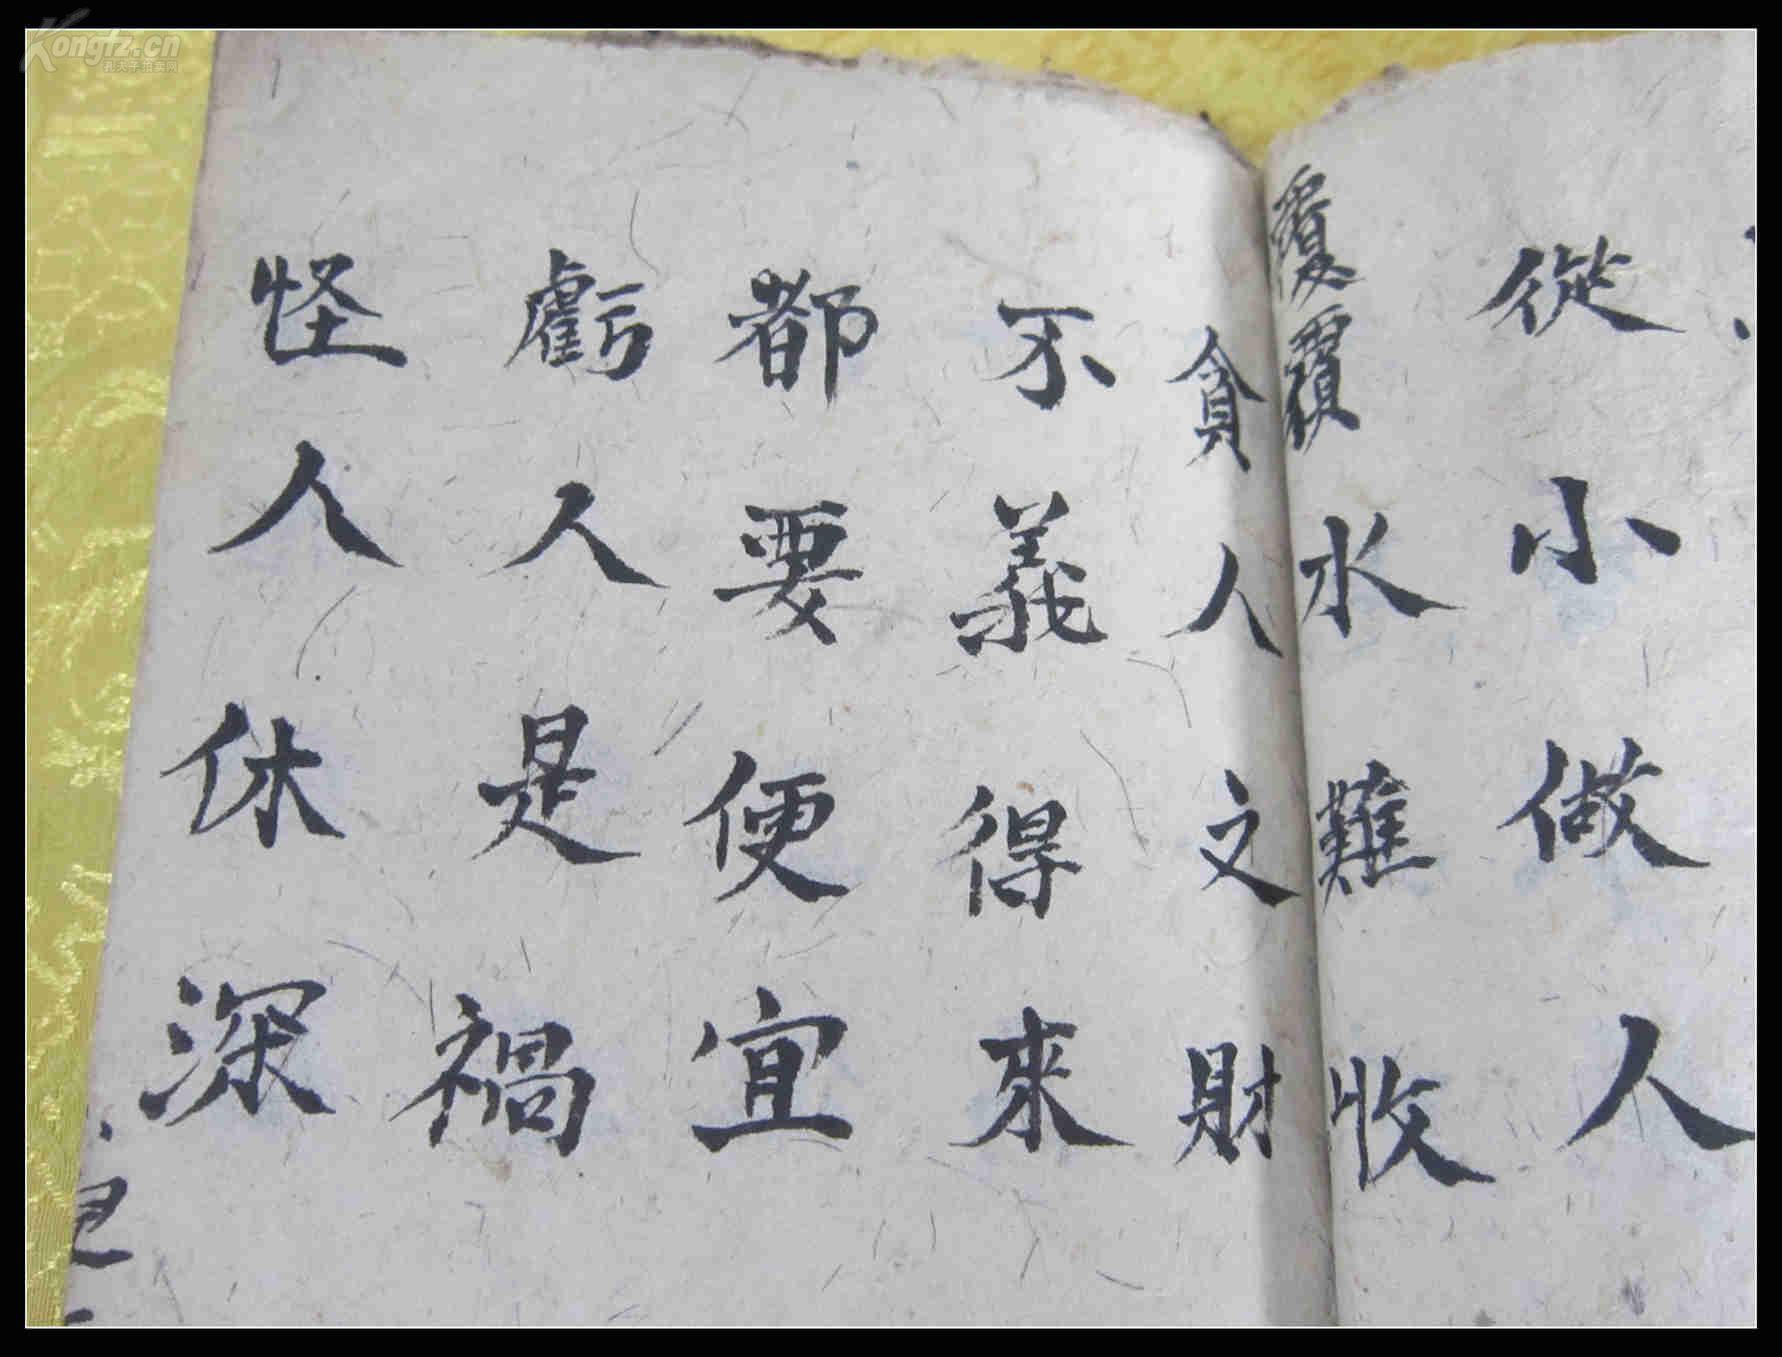 Kongfz.cn
孔夫子拍卖网
從小做人
覆水難收
貪人之財
不義得來
都要便宜
虧人是禍
怪人休深